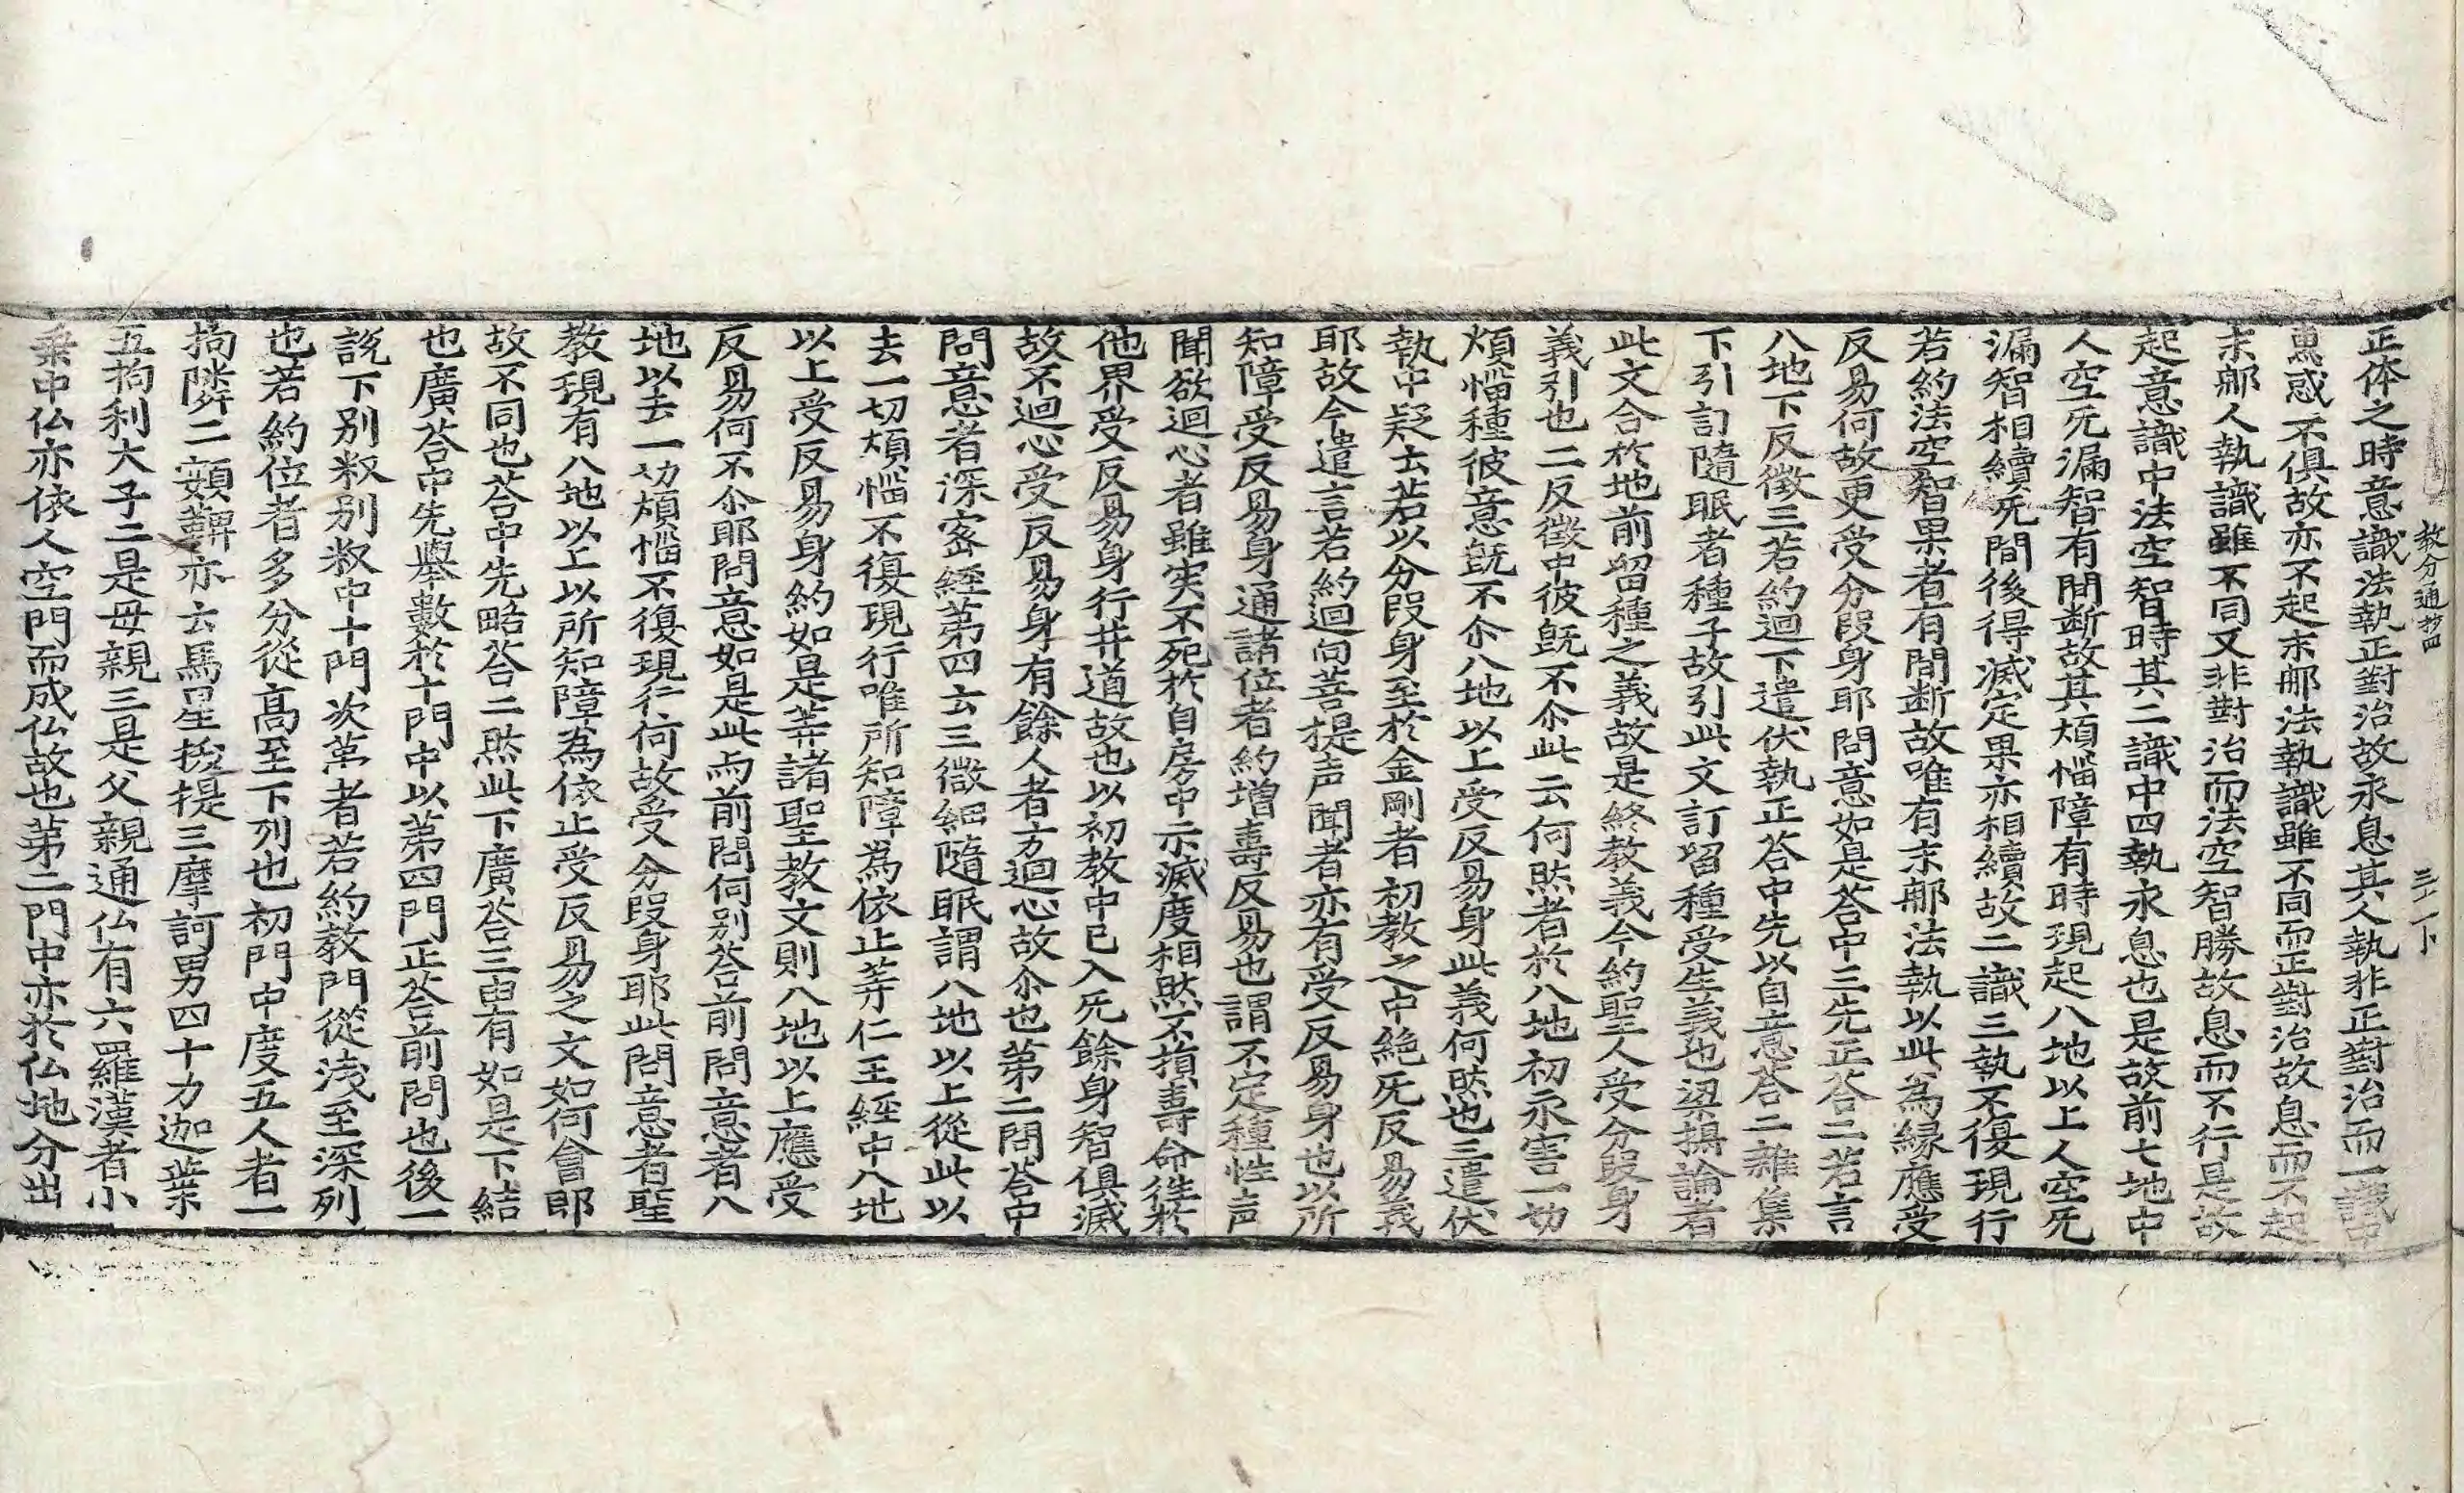 教分通抄四 三十一下
正体之時意識法執正對治故永息其人執非正對治而一識中
惠惑不俱故亦不起末那法執識雖不同而正對治故息而不起
末那人執識雖不同又非對治而法空智勝故息而不行是故
起意識中法空智時其二識中四執永息也是故前七地中
人空旡漏智有間断故其煩惱障有時現起八地以上人空旡
漏智相續旡間後得滅定果亦相續故二識三執不復現行
若約法空智果者有間断故唯有末那法執以此為縁應受
反易何故更受分段身耶問意如是荅中三先正荅二若言
八地下反徵三若約迴下遣伏執正荅中先以自意荅二雜集
下引訂隨眠者種子故引此文訂留種受生義也梁攝論者
此文合於地前留種之義故是終教義今約聖人受分段身
義引也二反徵中彼旣不尒此云何然者於八地初永害一切
煩惱種彼意旣不尒八地以上受反易身此義何然也三遣伏
執中疑云若以分段身至於金剛者初教之中絶旡反易義
耶故今遣言若約迴向菩提声聞者亦有受反易身也以所
知障受反易身通諸位者約增壽反易也謂不定種性声
聞欲迴心者雖実不死於自房中示滅度相然不損壽命徃於
他界受反易身行井道故也以初教中已入旡餘身智俱滅
故不迴心受反易身有餘人者方迴心故尒也第二問荅中
問意者深密經第四云三微細隨眠謂八地以上從此以
去一切煩惱不復現行唯所知障為依止等仁王經中八地
以上受反易身約如是等諸聖教文則八地以上應受
反易何不尒耶問意如是此而前問何別荅前問意者八
地以去一切煩惱不復現行何故受分段身耶此問意者聖
教現有八地以上以所知障為依止受反易之文如何會耶
故不同也荅中先略荅二然此下廣荅三由有如是下結
也廣荅中先舉數於十門中以第四門正荅前問也後一
說下別釈別釈中十門次第者若約教門從浅至深列
也若約位者多分從高至下列也初門中度五人者一
拘隣二頞鞞亦云馬星捘提三摩訶男四十力迦葉
五拘利大子二是母親三是父親通仏有六羅漢者小
乗中仏亦依人空門而成仏故也第二門中亦於仏地分出